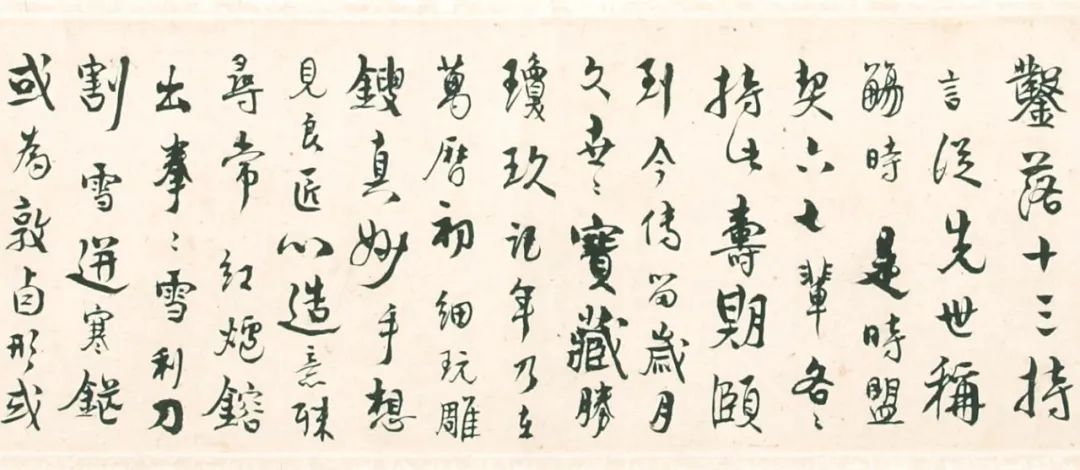 鑿落十三持
言從先世稱
觴時是時盟
契六七輩各〻
持此壽期頤
到今傳留歲月
久世〻寶藏勝
瓊玖記年乃在
萬曆初細玩雕
鎪真妙手想
見良匠心造意殊
尋常紅爐鎔
出拳〻雪利刀
割雪迸寒鋩
或為敦卣形或